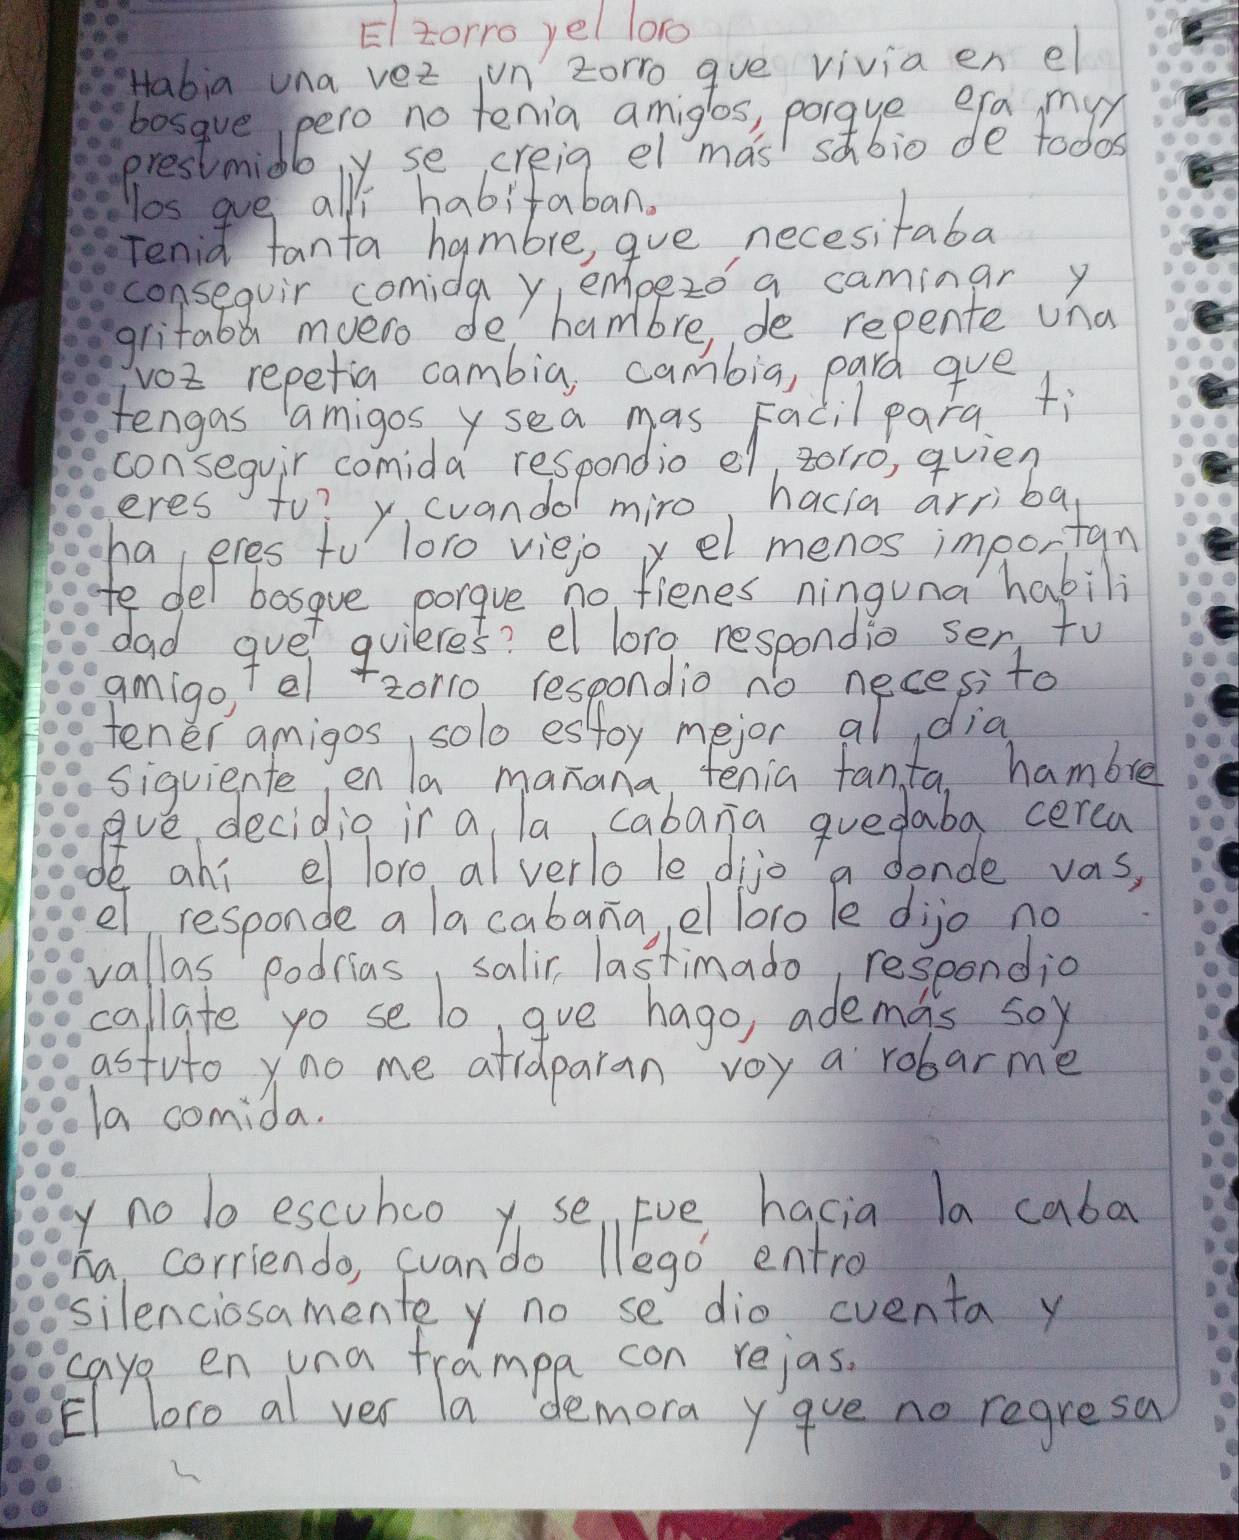 El zorro y el loro
Habia una vez un zorro que vivia en el
bosque pero no tenia amigos, porque era muy
presumido y se creia el más sabio de todos
los que alli habitaban.
Tenia tanta hambre, que necesitaba
conseguir comida y empezó a caminar y
gritaba muero de hambre, de repente una
voz repetia cambia, cambia, para que
tengas amigos y sea mas Facil para ti
conseguir comida respondio el zorro, quien
eres tu? y cuando miro hacia arriba
ha eres tu loro viejo y el menos importan
te del bosque porque no tienes ninguna habili
dad que quieres? el loro respondio ser tu
amigo, el zorro respondio no necesito
tener amigos, solo estoy mejor al dia
siguiente en la mañana tenia tanta hambre
que decidio ir a la cabaña quedaba cerca
de ahi el loro al verlo le dijo a donde vas,
el responde a la cabaña, el loro le dijo no
vallas podrias salir lastimado, respondio
callate yo se lo que hago, además soy
astuto y no me atraparan voy a robarme
la comida.
y no lo escuhco y se Fue hacia la caba
ña corriendo, cuando llegó entro
silenciosamente y no se dio cuenta y
cayo en una trampa con rejas.
El loro al ver la demora y que no regresa